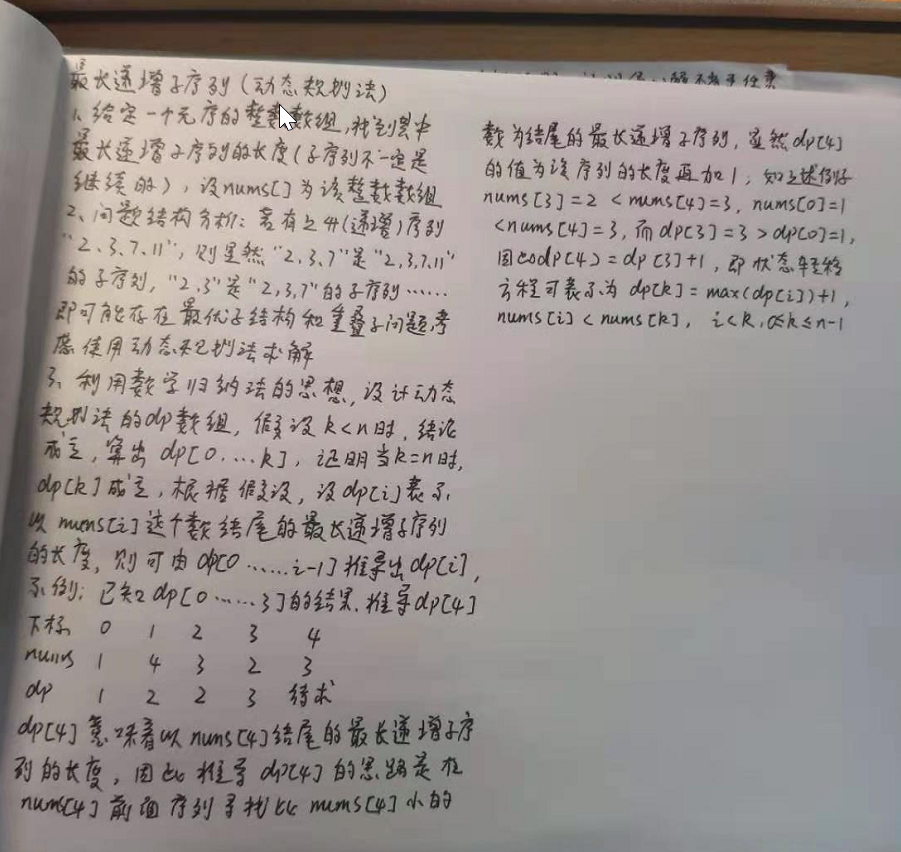 最长递增子序列（动态规划法）
1、给定一个无序的整数数组，找到其中
最长递增子序列的长度（子序列不一定是
继续的），设nums[]为该整数数组
2、问题结构分析：若有上升(递增)序列
“2、3、7、11”，则显然“2,3、7”是“2,3,7,11”
的子序列，“2,3”是“2,3,7”的子序列……
即可能存在最优子结构和重叠子问题，考
虑使用动态规划法求解
3、利用数学归纳法的思想，设计动态
规划法的dp数组，假设k<n时，结论
成立，算出dp[0....k]，证明当k=n时，
dp[k]成立，根据假设，设dp[i]表示
以nums[i]这个数结尾的最长递增子序列
的长度，则可由dp[0……i-1]推导出dp[i]，
示例：已知dp[0……3]的结果，推导dp[4]
下标 0 1 2 3 4
nums 1 4 3 2 3
dp 1 2 2 3 待求
dp[4]意味着以nums[4]结尾的最长递增子序
列的长度，因此推导dp[4]的思路是在
nums[4]前面序列寻找比nums[4]小的
数为结尾的最长递增子序列，显然dp[4]
的值为该序列的长度再加1，如上述例子
nums[3]=2<nums[4]=3，nums[0]=1
<nums[4]=3，而dp[3]=3>dp[0]=1，
因此dp[4]=dp[3]+1，即状态转移
方程可表示为dp[k]=max(dp[i])+1，
nums[i]<nums[k]，i<k,0≤k≤n-1